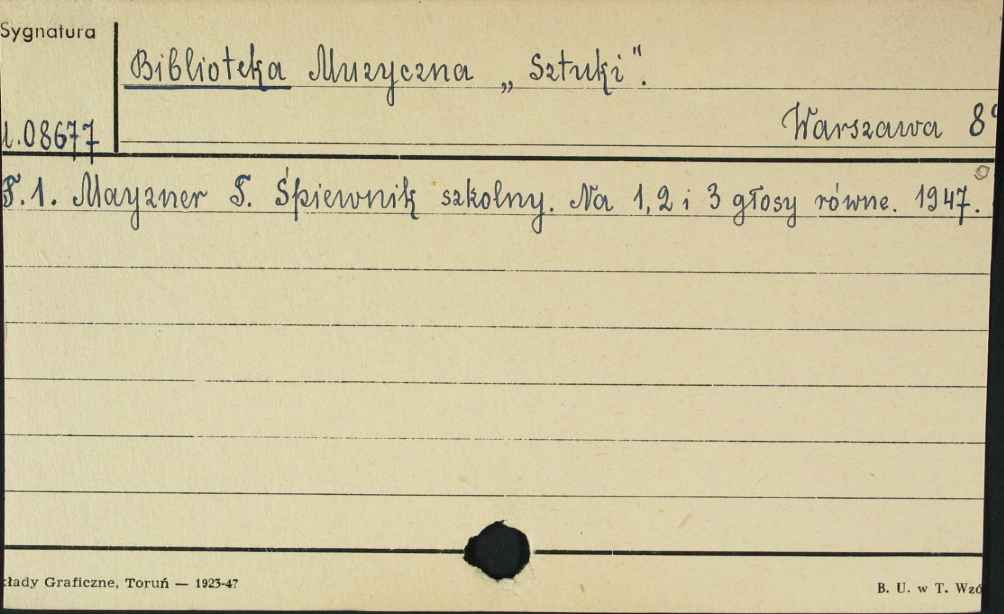 Sygnatura
Biblioteka Muzyczna „Sztuki".
Warszawa 8°
1.08677
T.1. Mayzner T. Śpiewnik szkolny. Na 1, 2 i 3 głosy równe. 1947.
kłady Graficzne, Toruń — 1923-47
B. U. w T. Wzó